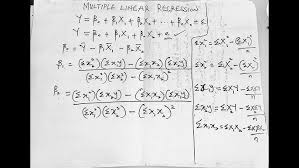 MULTIPLE LINEAR REGRESSION
Y = β₀ + β₁X₁ + β₂X₂ + ... + βₙXₙ ± ε
Y = β₀ + β₁X₁ + β₂X₂ + ε
β₀ = Ȳ - β₁X̄₁ - β₂X̄₂
β₁ = (Σx₂²)(Σx₁y) - (Σx₁x₂)(Σx₂y)
(Σx₁²)(Σx₂²) - (Σx₁x₂)²
β₂ = (Σx₁²)(Σx₂y) - (Σx₁x₂)(Σx₁y)
(Σx₁²)(Σx₂²) - (Σx₁x₂)²
Σx₁² = ΣX₁² - (ΣX₁)²
n
Σx₂² = ΣX₂² - (ΣX₂)²
n
Σx₁y = ΣX₁Y -
n
Σx₂y = ΣX₂Y -
n
Σx₁x₂ = ΣX₁X₂ -
n